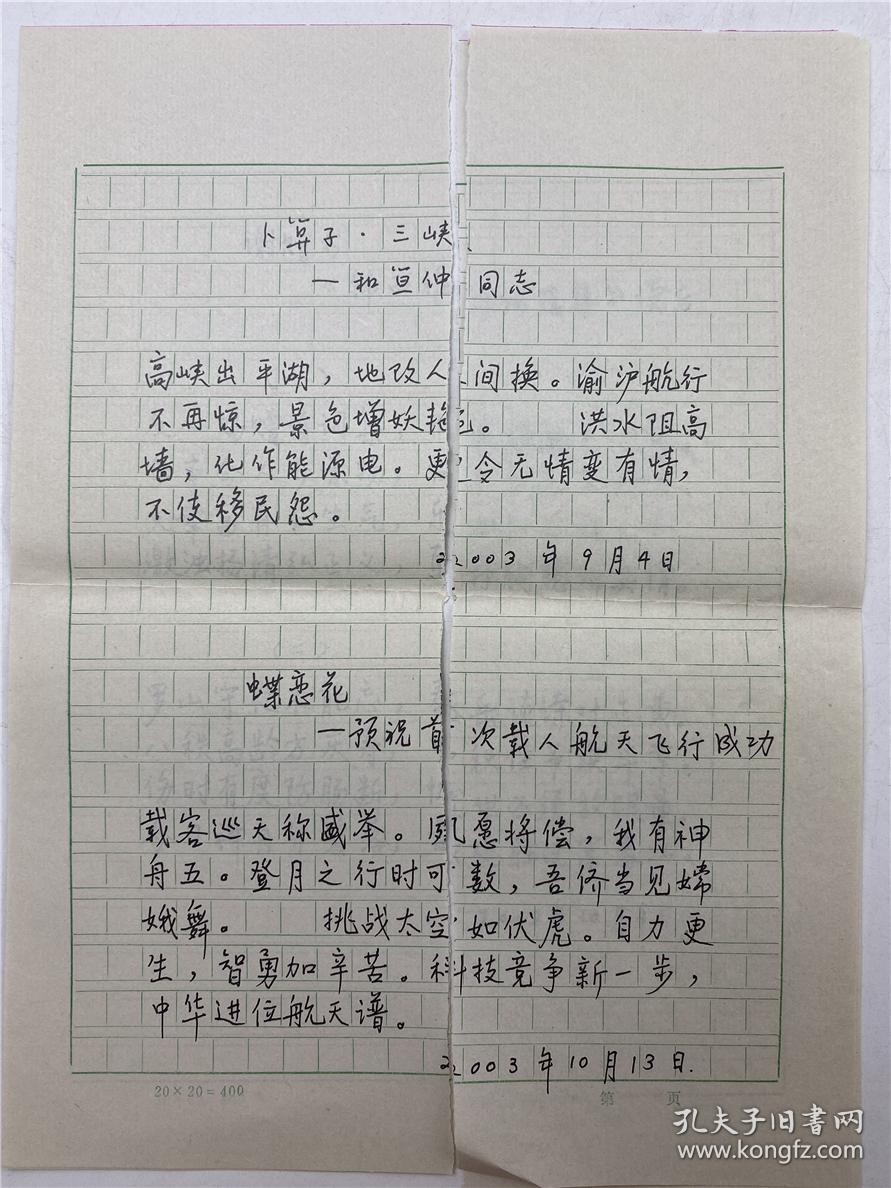 卜算子·三峡
—和亘仲同志
高峡出平湖，地改人间换。渝沪航行
不再惊，景色增妖艳。 洪水阻高
墙，化作能源电。更令无情变有情，
不使移民怨。
2003年9月4日
蝶恋花
—预祝首次载人航天飞行成功
载客巡天称盛举。夙愿将偿，我有神
舟五。登月之行时可数，吾侪当见嫦
娥舞。 挑战太空如伏虎。自力更
生，智勇加辛苦。科技竞争新一步，
中华进位航天谱。
2003年10月13日.
20×20=400
第 页
孔夫子旧书网
www.kongfz.com